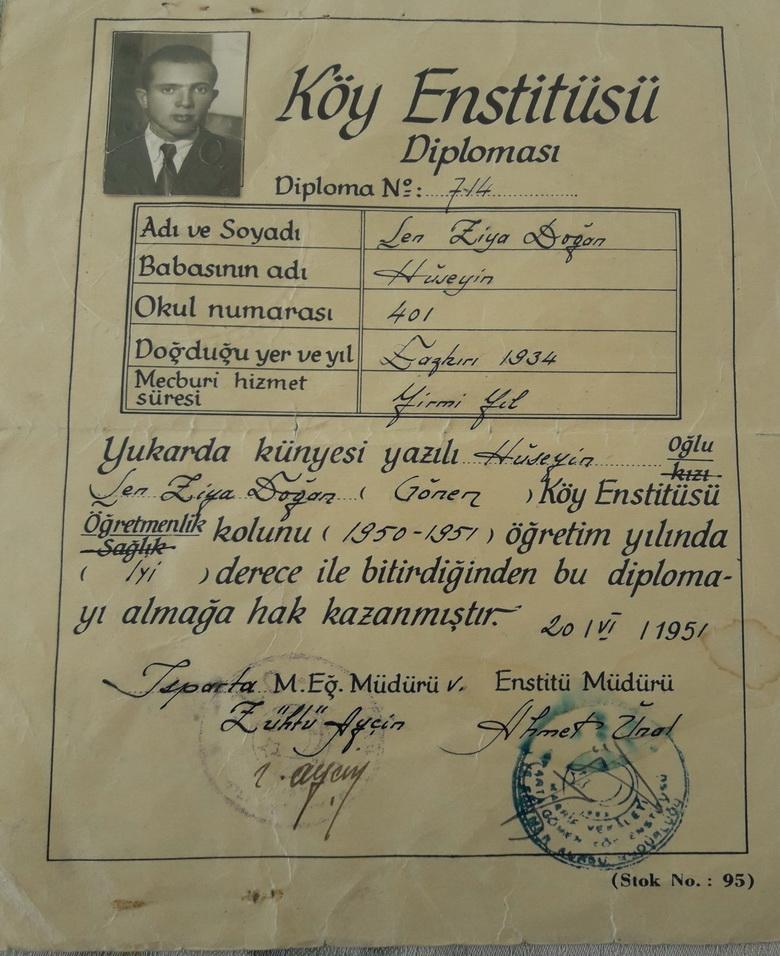 Köy Enstitüsü
Diploması
Diploma Nº: 714
Adı ve Soyadı Şen Ziya Doğan
Babasının adı Hüseyin
Okul numarası 401
Doğduğu yer ve yıl 1934
Mecburi hizmet
süresi Yirmi Yıl
Yukarda künyesi yazılı Hüseyin Oğlu
kızı
Şen Ziya Doğan ( Gönen ) Köy Enstitüsü
Öğretmenlik
Sağlık
kolunu ( 1950-1951 ) öğretim yılında
( İyi ) derece ile bitirdiğinden bu diploma-
yı almağa hak kazanmıştır.
20 / VI / 1951
Isparta M.Eğ. Müdürü v. Enstitü Müdürü
Zühtü Ayçin Ahmet Ünal
Z. Ayçin
(Stok No.: 95)